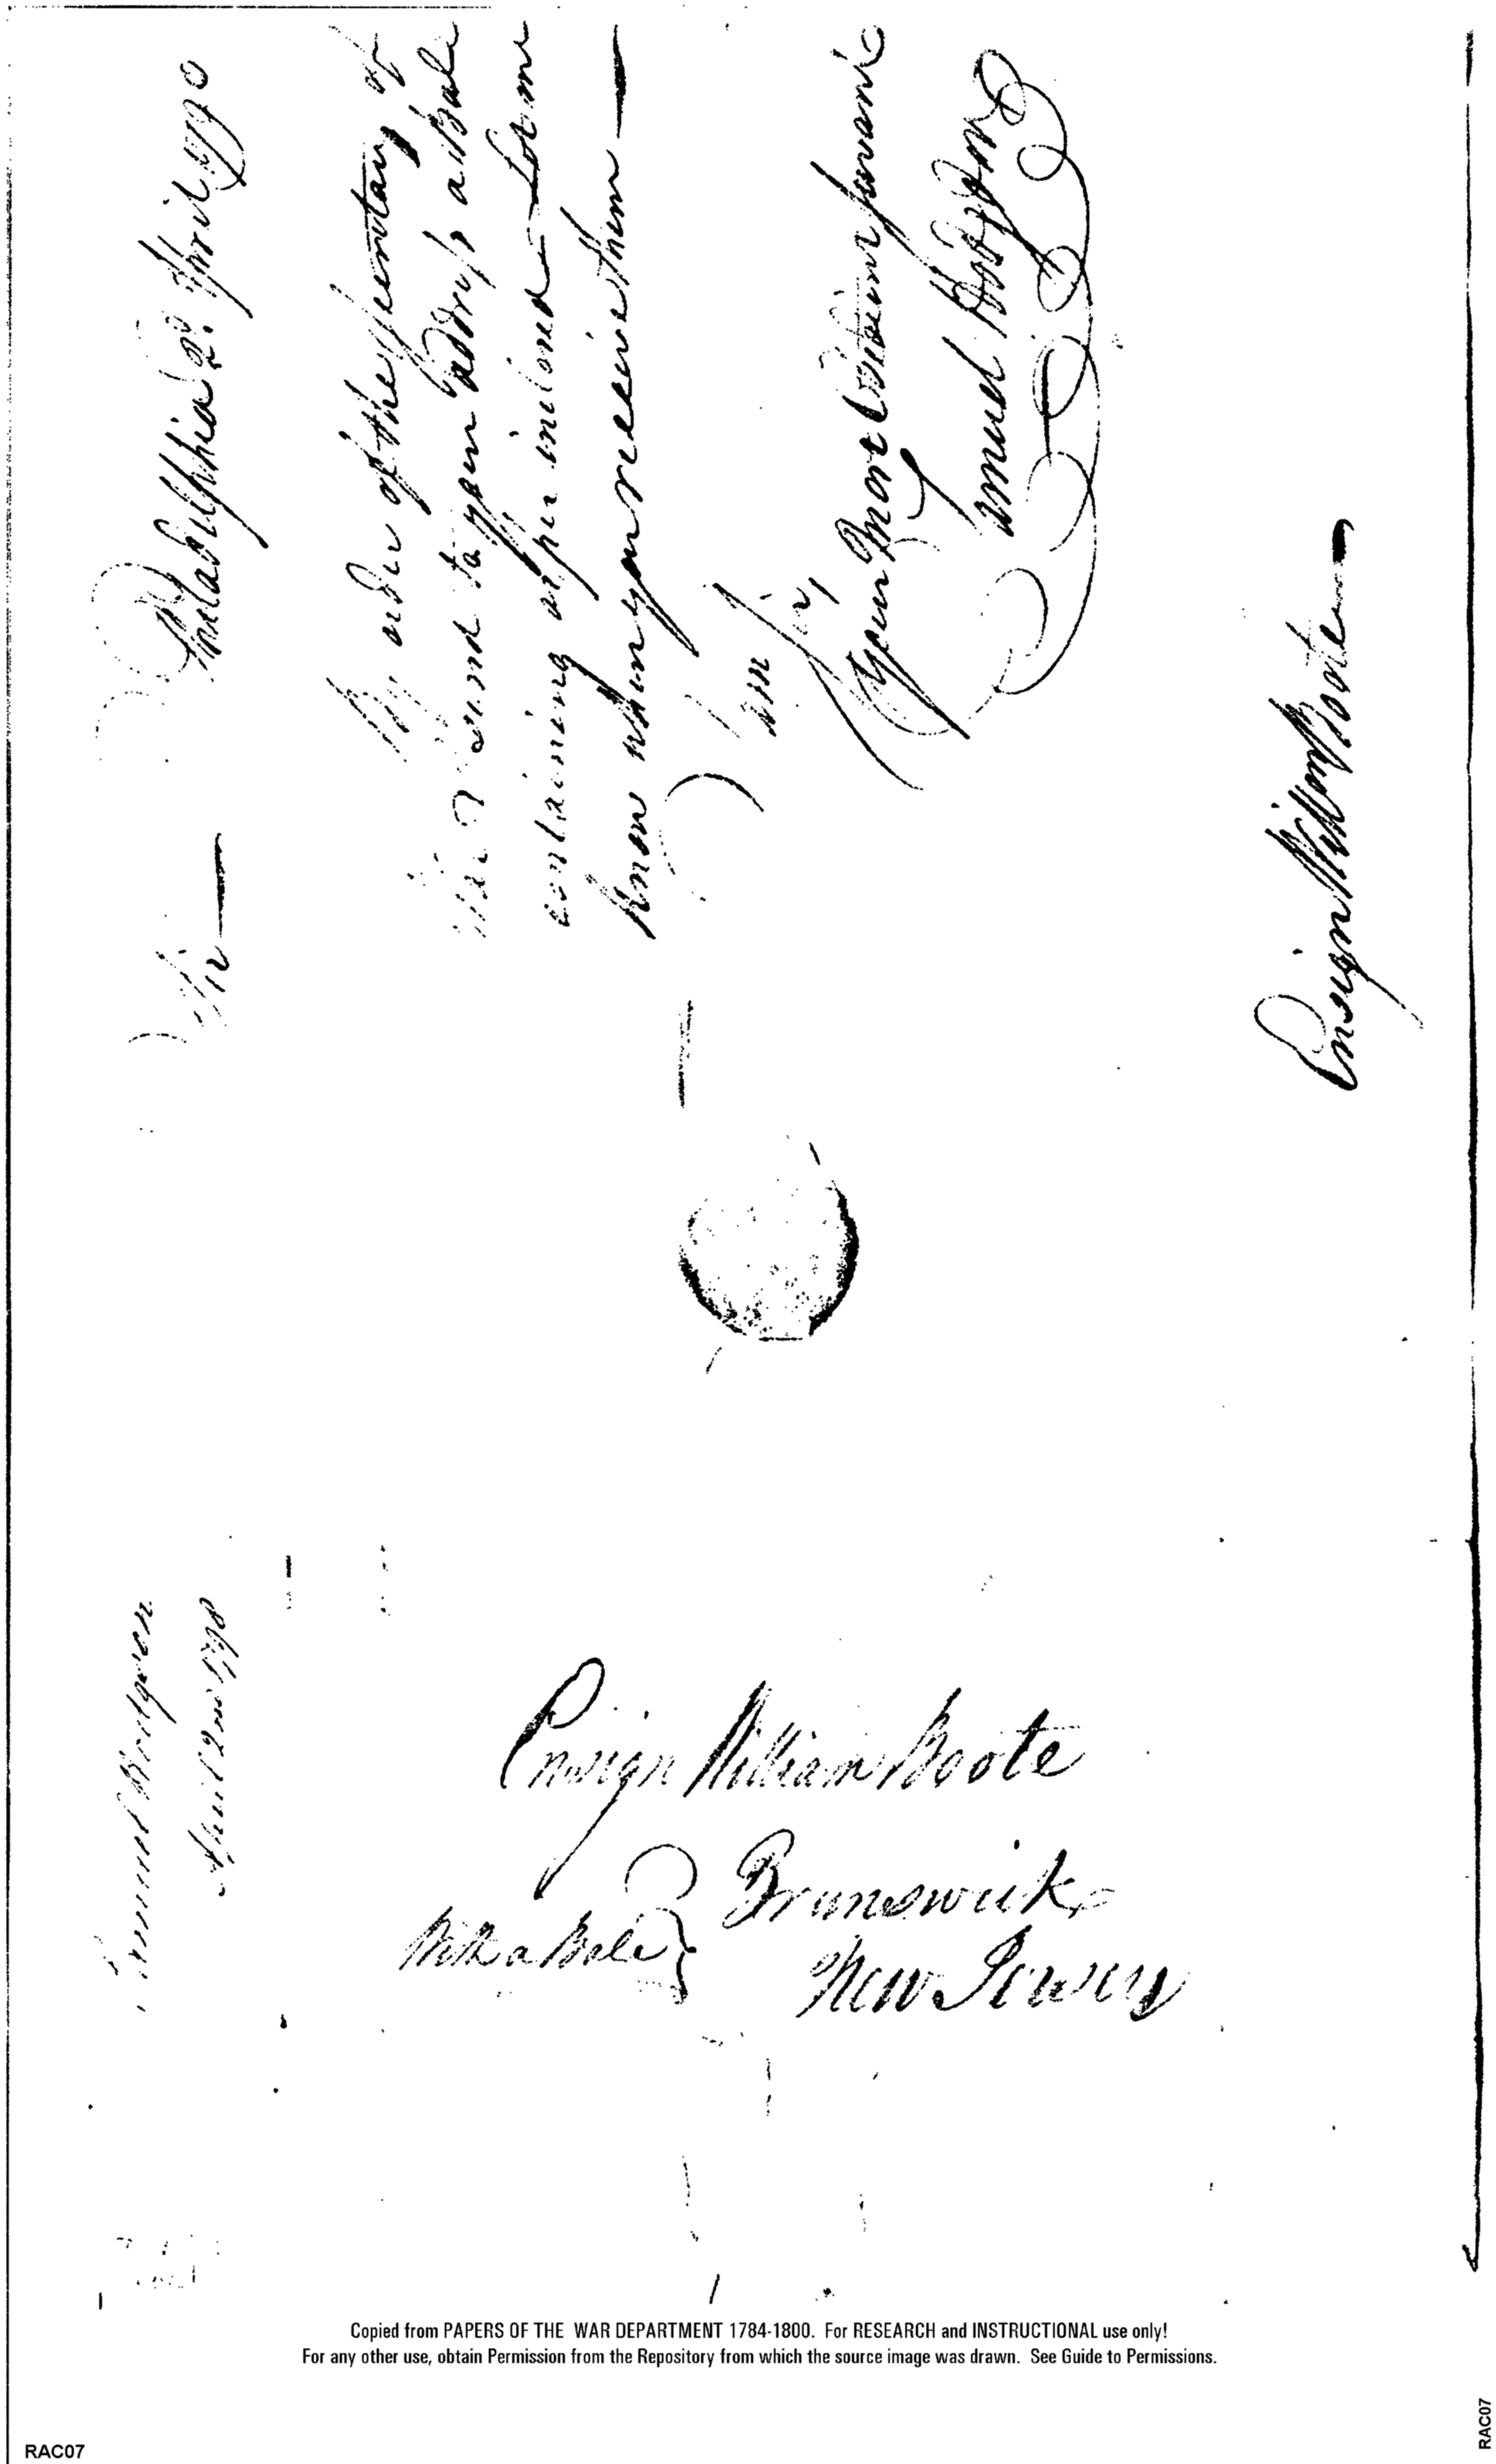 Philadelphia 2d. April 1790
Sir —
By order of the Secretary of
War I send to your address a Bale
containing as per inclosed — let me
know when you receive them —
I am
Sir,
Your Most Obedient Servant
Samuel Hodgdon
Ensign William Boote —
Samuel Hodgdon
April 2nd 1790
Ensign William Boote
Brunswick
With a Bale }
New Jersey
Copied from PAPERS OF THE WAR DEPARTMENT 1784-1800. For RESEARCH and INSTRUCTIONAL use only!
For any other use, obtain Permission from the Repository from which the source image was drawn. See Guide to Permissions.
RAC07
RAC07